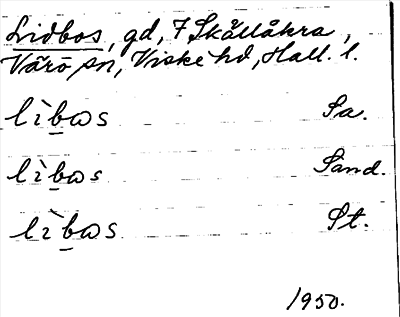 Lidbos, gd, 7 Skällåkra,
Värö sn, Viske hd, Hall. l.
lìbɷs Sa.
lìbɷs Sand.
lìbɷs St.
1950.